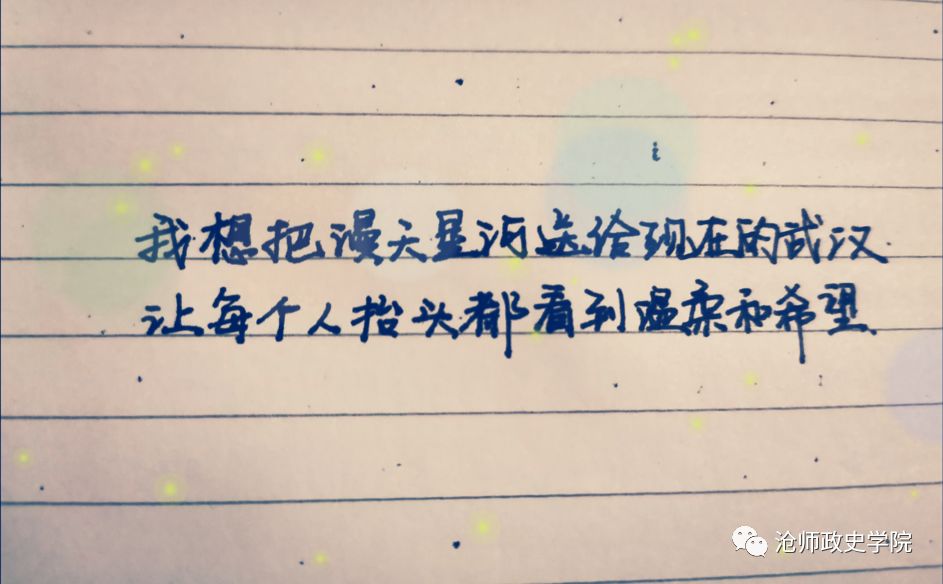 我想把漫天星河送给现在的武汉
让每个人抬头都看到温柔和希望
沧师政史学院